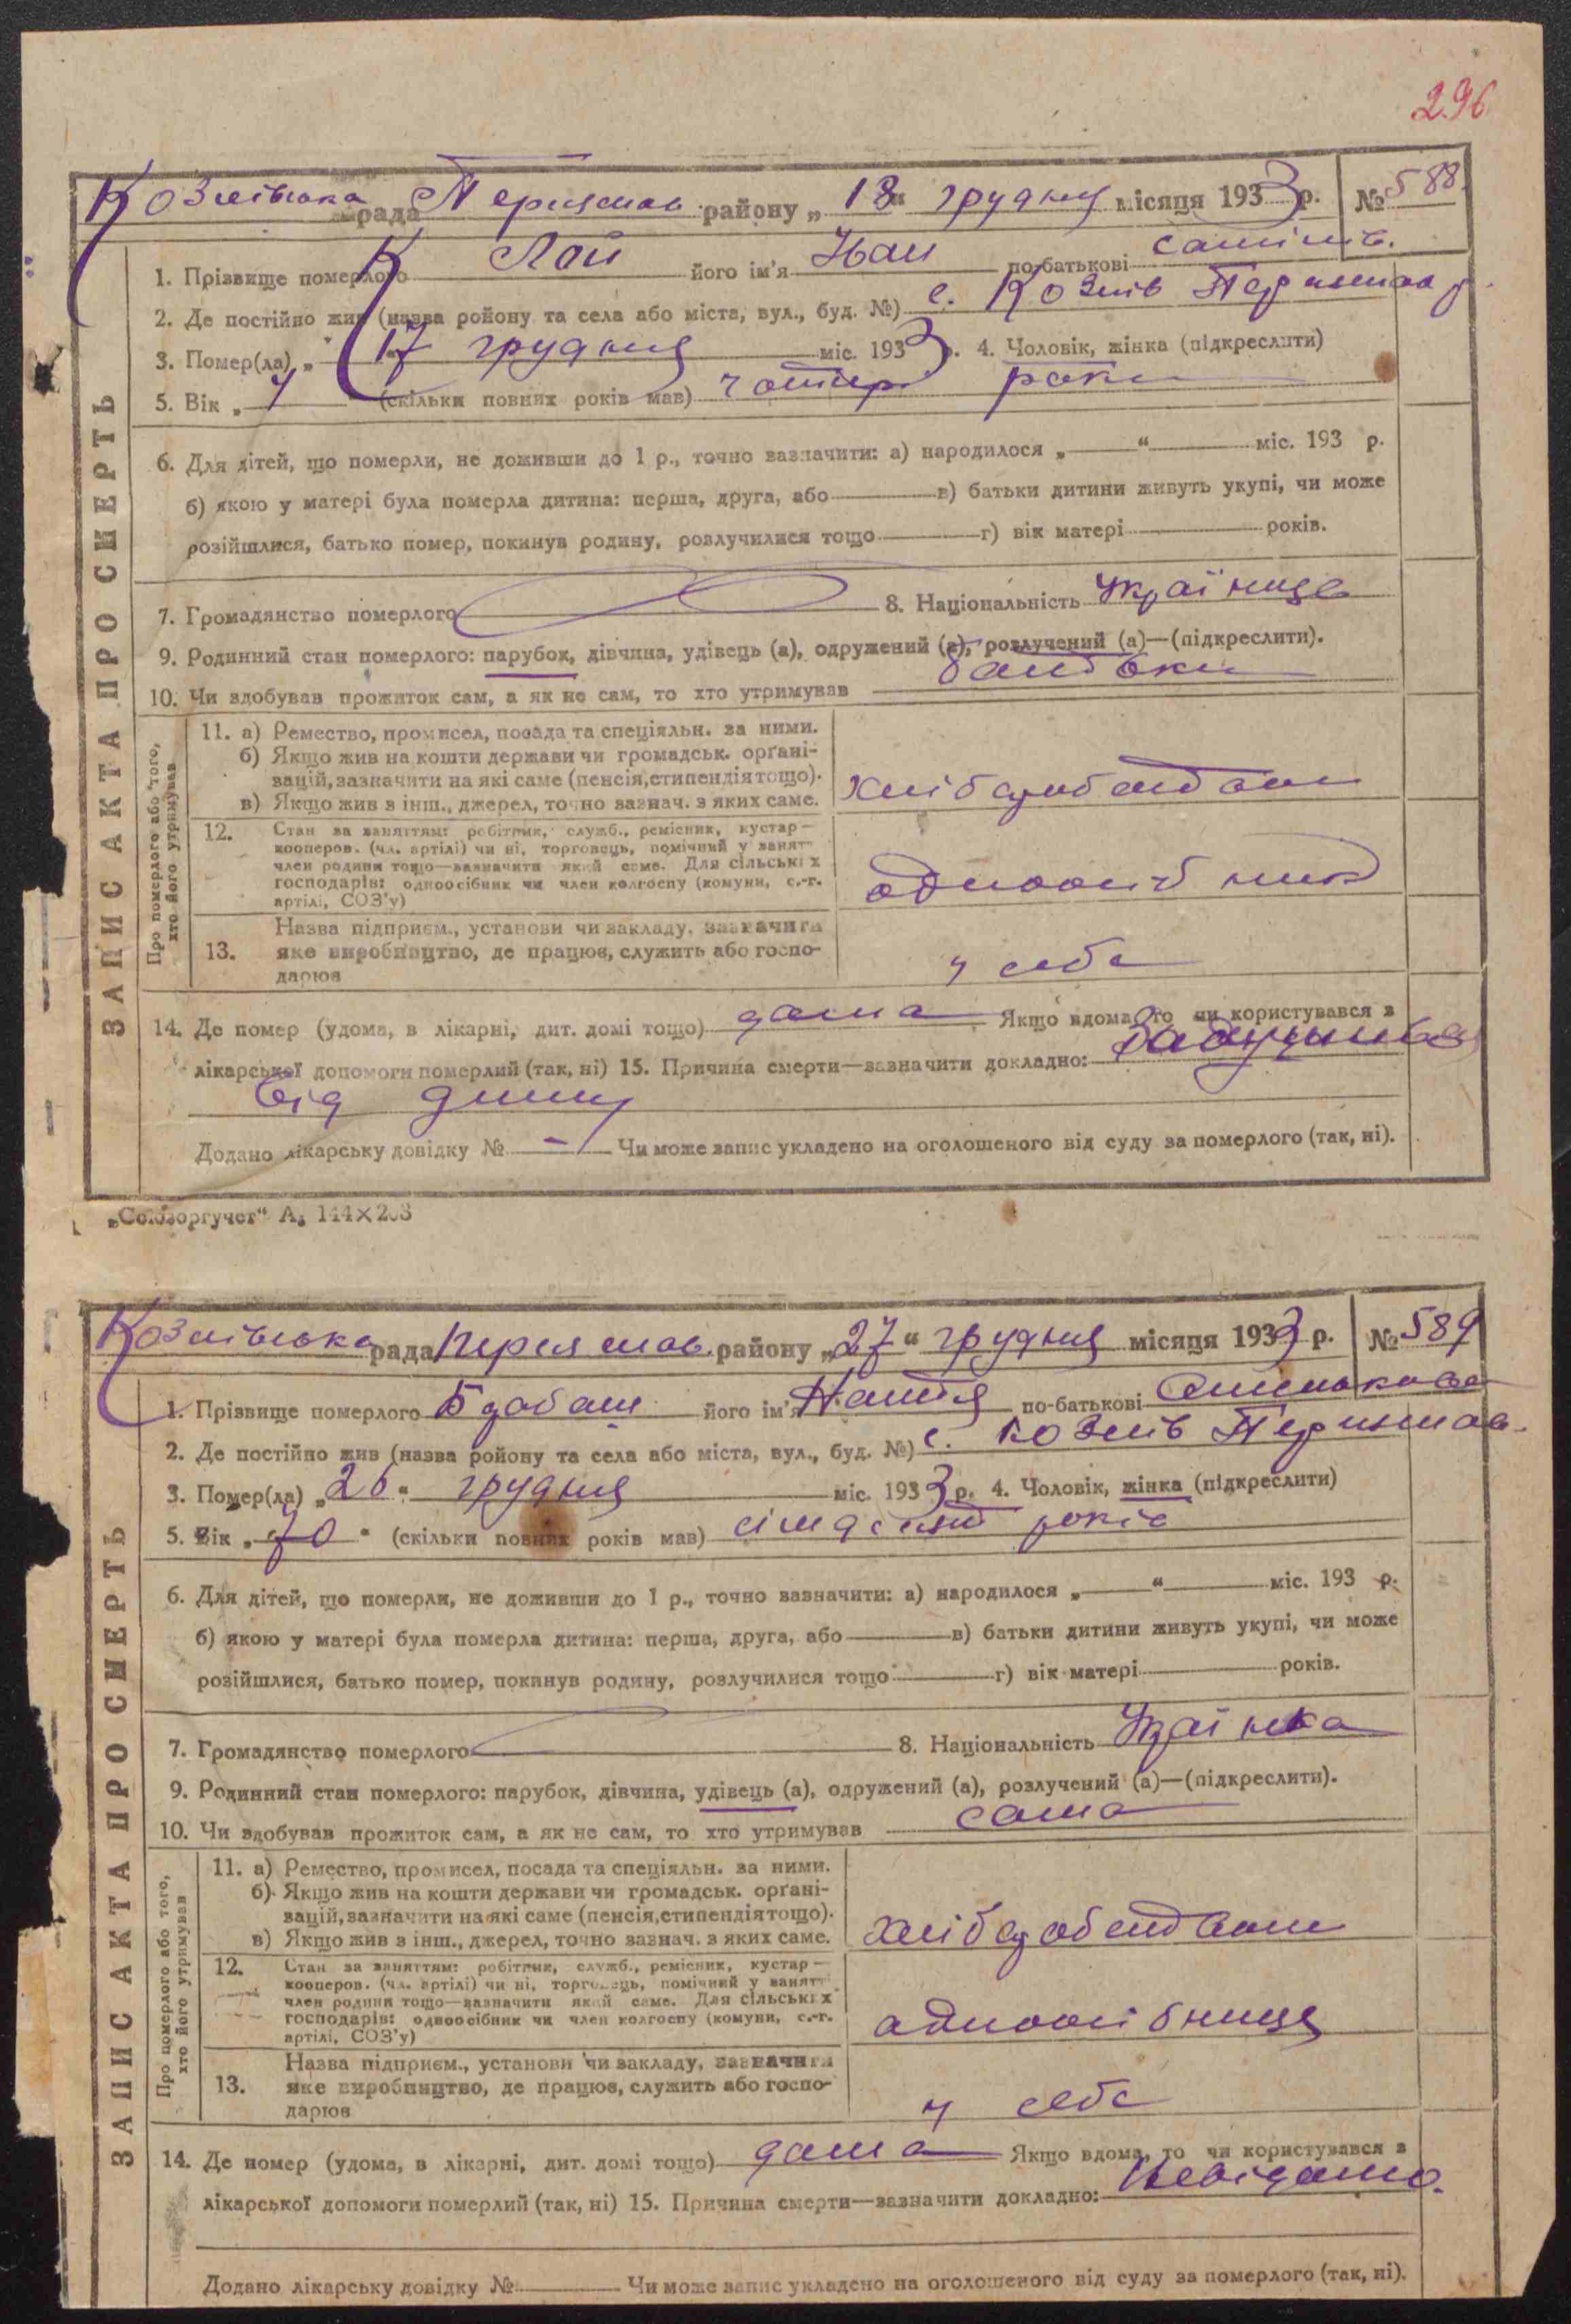 296
Козлівська рада Переяслав району „18“ грудня місяця 1933 р. № 588
1. Прізвище померлого Лай його ім'я Іван по-батькові
2. Де постійно жив (назва ройону та села або міста, вул., буд. №) с. Козлів Переяслав р.
3. Помер(ла) „17“ грудня міс. 1933 р. 4. Чоловік, жінка (підкреслити)
5. Вік „4“ (скільки повних років мав) чотири роки
ЗАПИС АКТА ПРО СМЕРТЬ
6. Для дітей, що померли, не доживши до 1 р., точно зазначити: а) народилося „ “ міс. 193 р.
б) якою у матері була померла дитина: перша, друга, або в) батьки дитини живуть укупі, чи може
розійшлися, батько помер, покинув родину, розлучилися тощо г) вік матері років.
7. Громадянство померлого 8. Національність Українець
9. Родинний стан померлого: парубок, дівчина, удівець (а), одружений (а), розлучений (а)—(підкреслити).
10. Чи здобував прожиток сам, а як не сам, то хто утримував батьки
Про померлого або того, хто його утримував
11. а) Ремество, промисел, посада та спеціяльн. за ними.
б) Якщо жив на кошти держави чи громадськ. орґані-
зацій, зазначити на які саме (пенсія, стипендія тощо).
в) Якщо жив з інш., джерел, точно зазнач. з яких саме.
хлібороб
12. Стан за заняттям: робітник, служб., ремісник, кустар—
кооперов. (чл. артілі) чи ні, торговець, помічний у занятт
член родини тощо—зазначити який саме. Для сільських
господарів: одноосібник чи член колгоспу (комуни, с.-г.
артілі, СОЗ'у)
одноосібник
Назва підприєм., установи чи закладу, зазначити
13. яке виробництво, де працює, служить або госпо-
дарює
у себе
14. Де помер (удома, в лікарні, дит. домі тощо) дома Якщо вдома, то чи користувався з
лікарської допомоги померлий (так, ні) 15. Причина смерти—зазначити докладно:
від диму
Додано лікарську довідку № — Чи може запис укладено на оголошеного від суду за померлого (так, ні).
„Союзоргучет“ А₅ 144×203
Козлівська рада Переяслав. району „27“ грудня місяця 1933 р. № 589
1. Прізвище померлого його ім'я Настя по-батькові
2. Де постійно жив (назва ройону та села або міста, вул., буд. №) с. Козлів Переяслав.
3. Помер(ла) „26“ грудня міс. 1933 р. 4. Чоловік, жінка (підкреслити)
5. Вік „70“ (скільки повних років мав) сімдесят років
ЗАПИС АКТА ПРО СМЕРТЬ
6. Для дітей, що померли, не доживши до 1 р., точно зазначити: а) народилося „ “ міс. 193 р.
б) якою у матері була померла дитина: перша, друга, або в) батьки дитини живуть укупі, чи може
розійшлися, батько помер, покинув родину, розлучилися тощо г) вік матері років.
7. Громадянство померлого 8. Національність Українка
9. Родинний стан померлого: парубок, дівчина, удівець (а), одружений (а), розлучений (а)—(підкреслити).
10. Чи здобував прожиток сам, а як не сам, то хто утримував сама
Про померлого або того, хто його утримував
11. а) Ремество, промисел, посада та спеціяльн. за ними.
б) Якщо жив на кошти держави чи громадськ. орґані-
зацій, зазначити на які саме (пенсія, стипендія тощо).
в) Якщо жив з інш., джерел, точно зазнач. з яких саме.
12. Стан за заняттям: робітник, служб., ремісник, кустар—
кооперов. (чл. артілі) чи ні, торговець, помічний у занятт
член родини тощо—зазначити який саме. Для сільських
господарів: одноосібник чи член колгоспу (комуни, с.-г.
артілі, СОЗ'у)
одноосібниця
Назва підприєм., установи чи закладу, зазначити
13. яке виробництво, де працює, служить або госпо-
дарює
у себе
14. Де помер (удома, в лікарні, дит. домі тощо) дома Якщо вдома, то чи користувався з
лікарської допомоги померлий (так, ні) 15. Причина смерти—зазначити докладно: Невідомо.
Додано лікарську довідку № Чи може запис укладено на оголошеного від суду за померлого (так, ні).